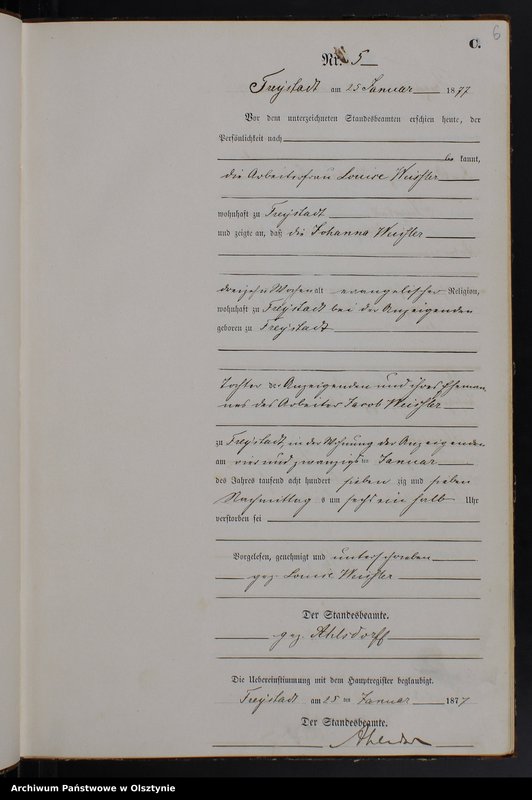 6
C.
Nr. 5
Freystadt am 25 Januar 1877
Vor dem unterzeichneten Standesbeamten erschien heute, der
Persönlichkeit nach
be kannt,
die Arbeiterfrau Louise
wohnhaft zu Freystadt
und zeigte an, daß die Johanna
dreizehn Wochen alt evangelischer Religion,
wohnhaft zu Freystadt bei der Anzeigenden
geboren zu Freystadt
Tochter der Anzeigenden und ihres Eheman
nes des Arbeiter Jacob
zu Freystadt, in der Wohnung der Anzeigenden
am ein und zwanzigsten Januar
des Jahres tausend acht hundert sieben zig und sieben
Nachmittag s um sechs ein halb Uhr
verstorben sei
Vorgelesen, genehmigt und unterschrieben
gez. Louise
Der Standesbeamte.
gez. Ahlsdorff
Die Uebereinstimmung mit dem Hauptregister beglaubigt.
Freystadt am 25 ten Januar 1877
Der Standesbeamte.
Archiwum Państwowe w Olsztynie